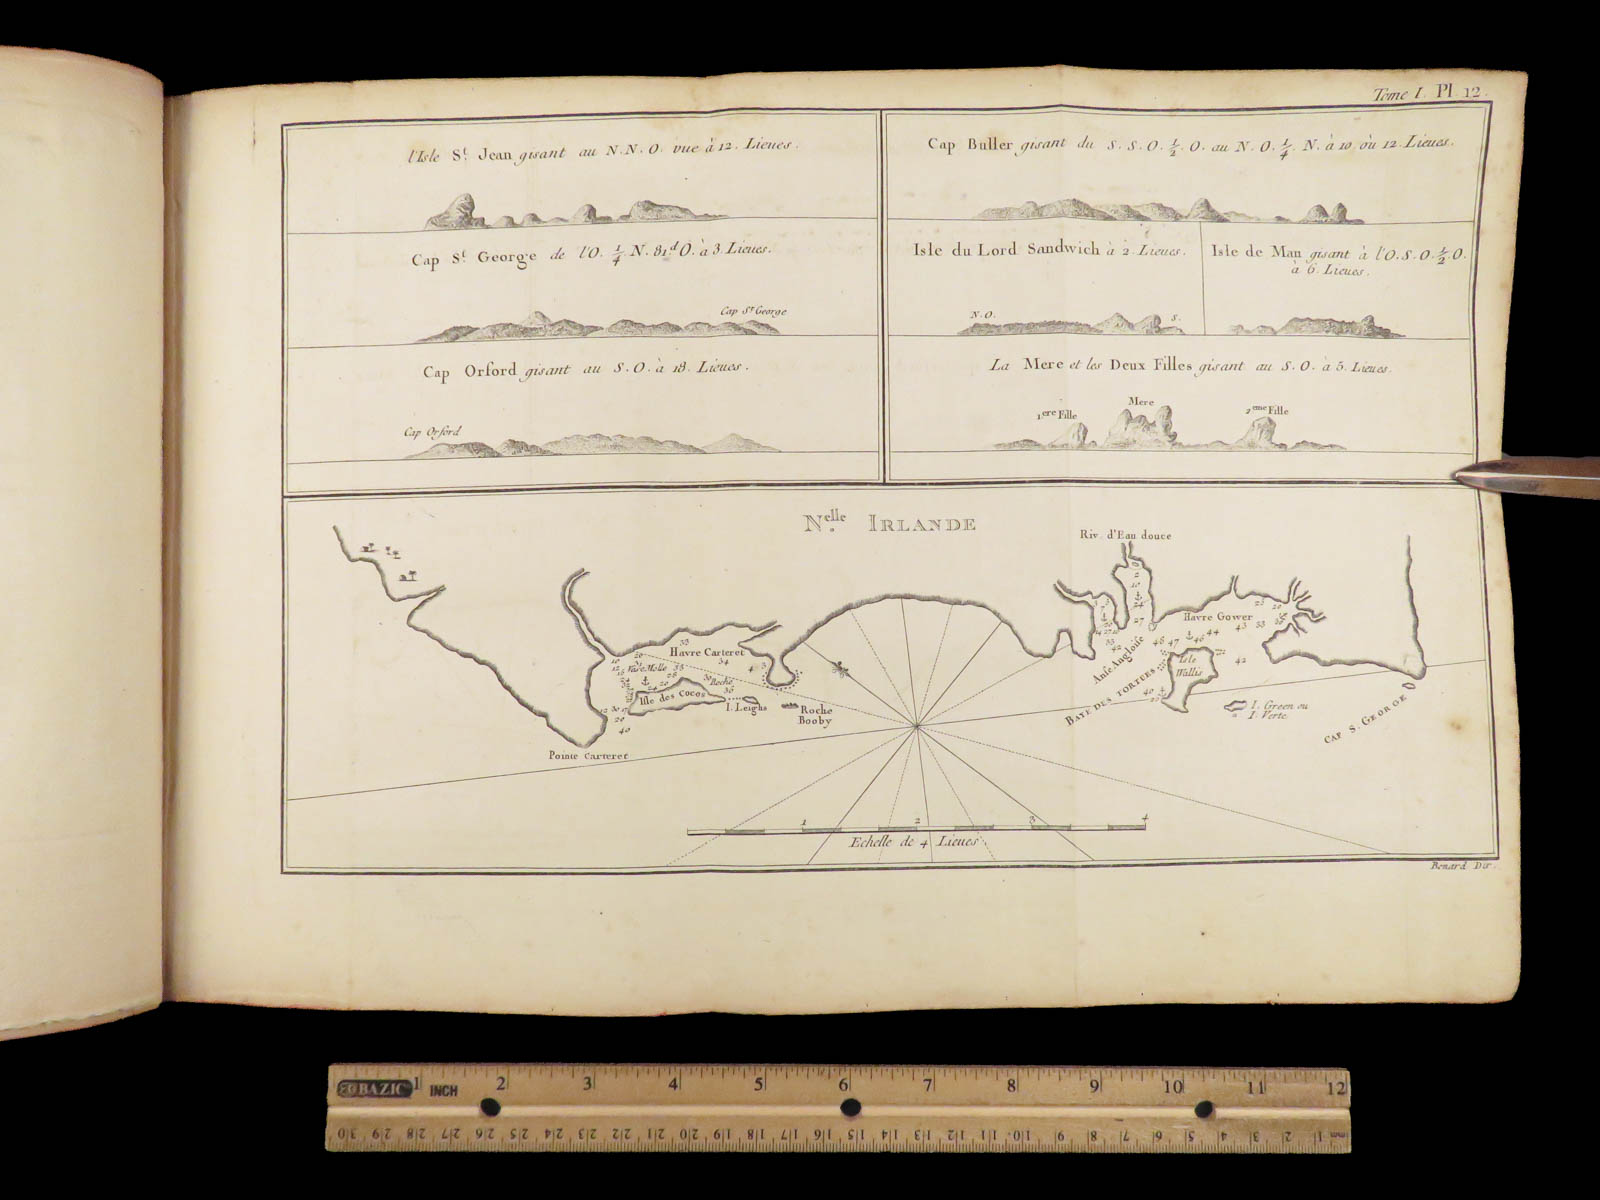 Tome I. Pl. 12.
l'Isle St. Jean gisant au N.N.O. vue à 12. Lieues.
Cap St. George de l'O. 1/4 N. 81d O. à 3. Lieues.
Cap St George
Cap Orford gisant au S.O. à 18. Lieues.
Cap Orford
Cap Buller gisant du S.S.O. 1/2 O. au N.O. 1/4 N. à 10 ou 12. Lieues.
Isle du Lord Sandwich à 2. Lieues.
N.O.
S.
Isle de Man gisant à l'O.S.O. 1/2 O.
à 6. Lieues.
La Mere et les Deux Filles gisant au S.O. à 5. Lieues.
1ere Fille
Mere
2eme Fille
Nelle. IRLANDE
Riv. d'Eau douce
Havre Carteret
Vase Molle
Roche
Isle des Cocos
I. Leighs
Roche
Booby
Pointe Carteret
Anse Angloise
Havre Gower
Isle
Wallis
BAYE DES TORTUES
I. Green ou
I. Verte
CAP S. GEORGE
1 2 3 4
Echelle de 4 Lieues
Benard Dir.
BAZIC
INCH
1 2 3 4 5 6 7 8 9 10 11 12
30 29 28 27 26 25 24 23 22 21 20 19 18 17 16 15 14 13 12 11 10 9 8 7 6 5 4 3 2 1 mm